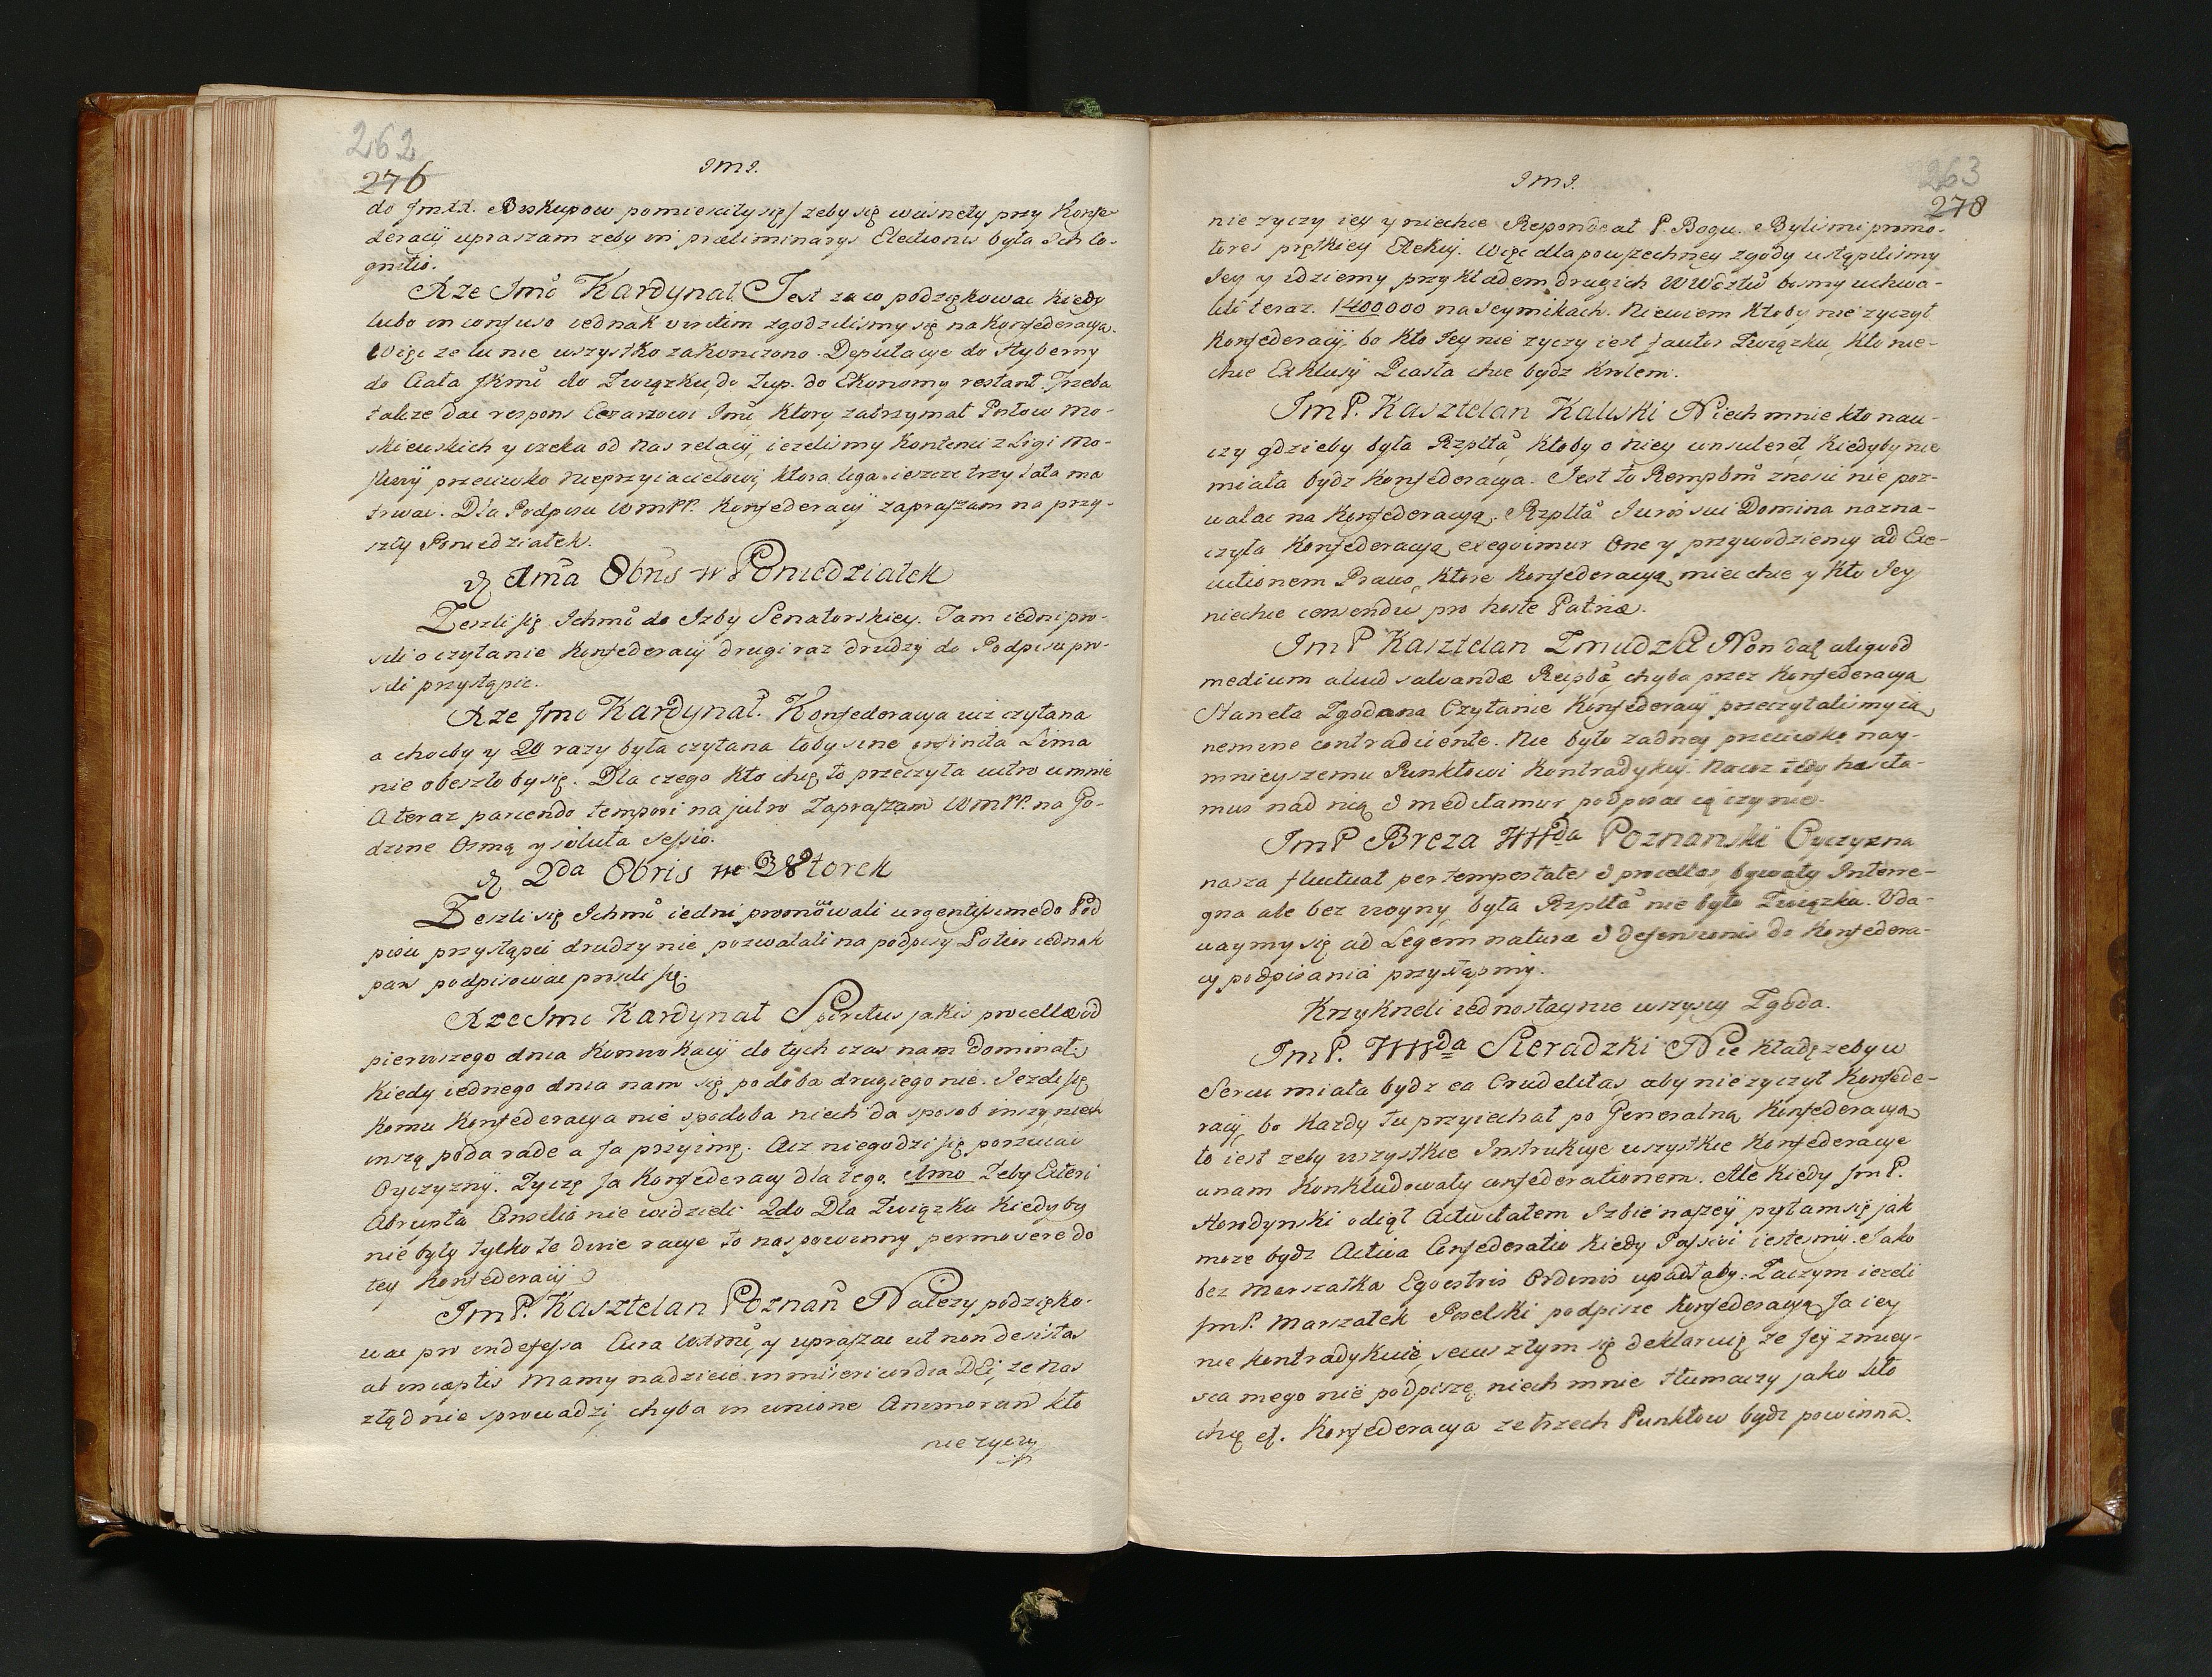 262
276
JMJ.
do JmXX. Biskupow pomiescily się/ zeby się wasnęty przy Konfe-
deracij upraszam zeby in praeliminarys Electionis była Ich Co-
gnitio.
Rze Jmć Kardynał. Jest za co podziękowac kiedy
lubo in confuso iednak viritim zgodzilismy się na Konfederacya.
Więc ze tu nie wszystko zakonczono. Deputacye do Hyberny
do Ciała JKmći do Związku, do Zup. do Ekonomy restant. Trzeba
takze dac respons Cesarzowi Jmć, ktory zatrzymał Posłow Mo-
skiewskich y czeka od nas relacij, iezelismy kontenci z Ligi Mo-
skwij przeciwko nieprzyiacielowi, ktora liga ieszcze trzy lata ma
trwac. Dla Podpisu WmPP. Konfederacij zapraszam na przy-
szły Poniedziałek.
d. 1ma 8bris w Poniedziałek
Zeszli się Ichmć do Izby Senatorskiey. Tam iedni pro-
sili o czytanie Konfederacij drugi raz drudzy do Podpisu pro-
sili przystąpic.
Rze Jmć Kardynał. Konfederacya iuż czytana
a chocby y 20 razy była czytana toby sine infinita Lima
nie obeszło by się. Dla czego kto chce to przeczyta iutro u mnie
A teraz parcendo tempori na jutro Zapraszam WmPP. na Go-
dzine Osmą y soluta Sessio.
d. 2da 8bris we Wtorek
Zeszli się Ichmć iedni promowali urgentissime do Pod
pisu przystąpić drudzy nie pozwalali na podpisy Potior iednak
pars podpisowac prosili się.
Rze Jmć Kardynał Spiritus jakis procellae od
pierwszego dnia Konwokacij do tych czas nam Dominatur
Kiedy iednego dnia nam się podoba drugiego nie. Jezeli się
komu Konfederacya nie spodoba niech da sposob inszy, niech
inszą poda rade a Ja przyimę. Acz niegodzi się porzucac
Oyczyzny. Zyczę Ja Konfederacy dla tego. 1mo Zeby Exteri
Abrupta Consilia nie widzieli 2do Dla Związku Kiedy by
nie były tylko te dwie racye to nas powinny permovere do
tey Konfederacij
Jm P. Kasztelan Poznań Nalezy podzięko-
wac pro indefessa Cura WXmći, y upraszac ut non desistas
ab incaeptis Mamy nadzieie in misericordia DEi, ze nas
ztąd nie sprowadzi, chyba in unione Animorum kto
nie zyczy
JMJ.
263
278
nie zyczy iey y niechce Respondeat P. Bogu. Bylismi promo-
tores prętkiey Elekcij. Więc dla powszechney zgody ustąpilismy
Jey y idziemy przykładem drugich WWdztw bosmy uchwa-
lili teraz. 1400000 na Seymikach. Niewiem ktoby nie zyczył
Konfederacij, bo kto Jey nie zyczy iest fautor Związku, kto nie-
chce Exklusij Piasta chce bydz Krolem.
Jm P. Kasztelan Kaliski Niech mnie kto nau-
czy gdzieby była Rzplta, ktoby o niey consuleret, kiedyby nie
miała bydz Konfederacya. Jest to Rempbm znosić nie poz-
walac na Konfederacyą. Rzplta Juris sui Domina nazna-
czyła Konfederacyą, exequimur One y przywodziemy ad Exe-
cutionem Prawo, ktore Konfederacyą miec chce y kto Jey
niechce censendus pro hoste Patriae.
Jm P Kasztelan Zmudzki Non dat aliquod
medium aliud salvandae Reipbae, chyba przez Konfederacya
Staneła Zgodna na Czytanie Konfederacij przeczytalismy ią
nemine contradicente. Nie było zadney przeciwko nay-
mnieyszemu Punktowi Kontradykcij. Nacoz tedy haesita-
mus nad nią I meditamur podpisac ią czy nie.
Jm P Breza WWda Poznanski Oyczyzna
nasza fluctuat per tempestates I procellas, bywały Interre-
gna ale bez woyny, była Rzplta nie było Związku. Uda-
waymy się ad Legem naturae I defensionis do Konfedera-
cij podpisania przystąpmy.
Krzykneli iednostaynie wszyscy Zgoda.
Jm P. WWda Sieradzki Nie kładę zeby w
Sercu miała bydz ea Crudelitas, aby nie zyczył Konfede-
racij, bo kazdy tu przyiechał po Generalną Konfederacyą
to iest zeby wszystkie Instrukcye wszystkie Konfederacye
unam Konkludowały confederationem. Ale kiedy Jm P.
Horodynski odiął Activitatem Izbie naszey, pytam się jak
moze bydz Activa Confederatio kiedy Passivi iestesmy. Jako
bez Marszałka Equestris Ordinis upadłaby. Zaczym iezeli
Jm P. Marszałek Poselski podpisze Konfederacyą Ja iey
nie kontradykuię, secus z tym się deklaruię ze Jey z miey-
sca mego nie podpiszę, niech mnie tłumaczy jako kto
chce et. Konfederacya ze trzech Punktow bydz powinna.